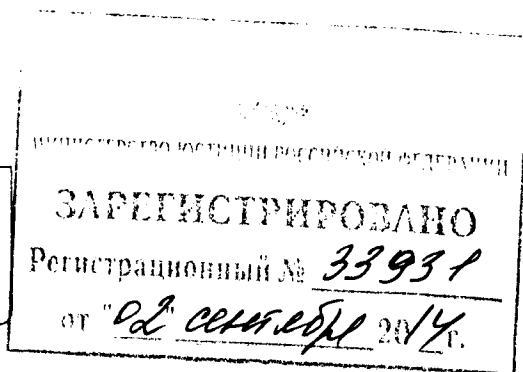 МИНИСТЕРСТВО ЮСТИЦИИ РОССИЙСКОЙ ФЕДЕРАЦИИ
ЗАРЕГИСТРИРОВАНО
Регистрационный № 33931
от "02" сентября 2014 г.